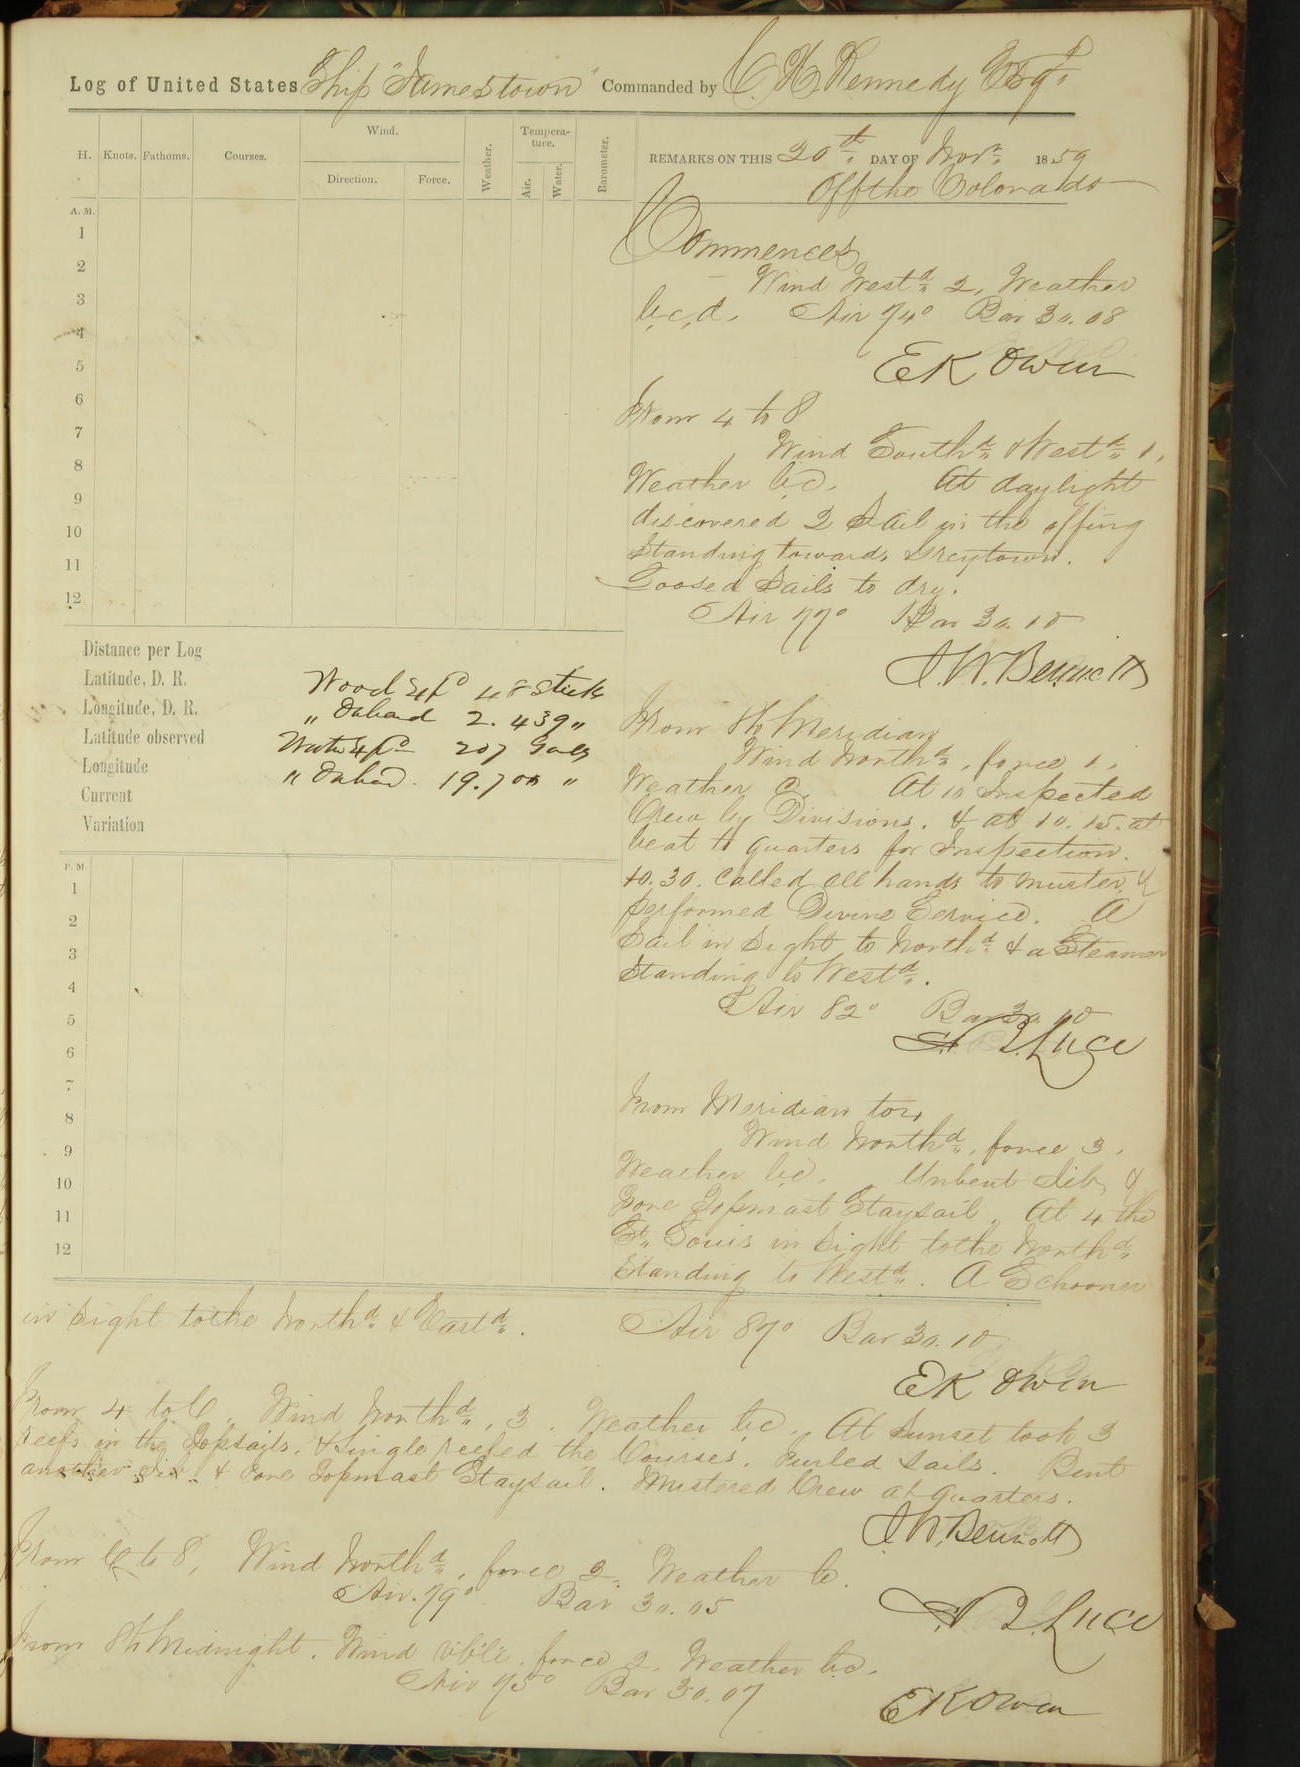 Log of United States Ship "Jamestown" Commanded by C. H. Kennedy Esqr.
H. Knots. Fathoms. Courses. Wind. Direction. Force. Weather. Temperature. Air. Water. Barometer.
REMARKS ON THIS 20th DAY OF Novr. 1859
Off the Colorado
A. M.
1
2
3
4
5
6
7
8
9
10
11
12
Commences
Wind Westd 2, Weather
b.c.d. Air 74° Bar 30.08
E K Owen
From 4 to 8
Wind Southd & Westd 1,
Weather b.c. At daylight
discovered 2 Sail in the offing
standing towards Greytown.
Loosed Sails to dry.
Air 77° Bar 30.10
J. W. Bennett
Distance per Log
Latitude, D. R.
Longitude, D. R.
Latitude observed
Longitude
Current
Variation
Wood Expd 48 Sticks
" Onhand 2.439 "
Water Expd 207 Galls
" Onhand 19.700 "
From 8 to Meridian
Wind Northd, force 1.
Weather c. At 10 Inspected
Crew by Divisions. & at 10.15. at
beat to quarters for Inspection.
10.30. Called all hands to muster &
performed Divine Service. A
Sail in Sight to Northd & a Steamer
Standing to Westd.
Air 82° Bar 30.10
S B Luce
P. M.
1
2
3
4
5
6
7
8
9
10
11
12
From Meridian to 4
Wind Northd, force 3.
Weather b.c. Unbent Jib, &
Fore Topmast Staysail. At 4 the
St. Louis in Sight to the Northd
Standing to Westd. A Schooner
in Sight to the Northd & Eastd.
Air 87° Bar 30.10
E K Owen
From 4 to 6, Wind Northd, 3. Weather b.c. At Sunset took 3
reefs in the Topsails. & Single reefed the Courses. Furled Sails. Bent
another Jib & Fore Topmast Staysail. Mustered Crew at quarters.
J. W. Bennett
From 6 to 8, Wind Northd, force 2. Weather b.
Air. 79° Bar 30.05
S B Luce
From 8 to Midnight. Wind Vble. force 2. Weather b.c.
Air 75° Bar 30.07
E K Owen